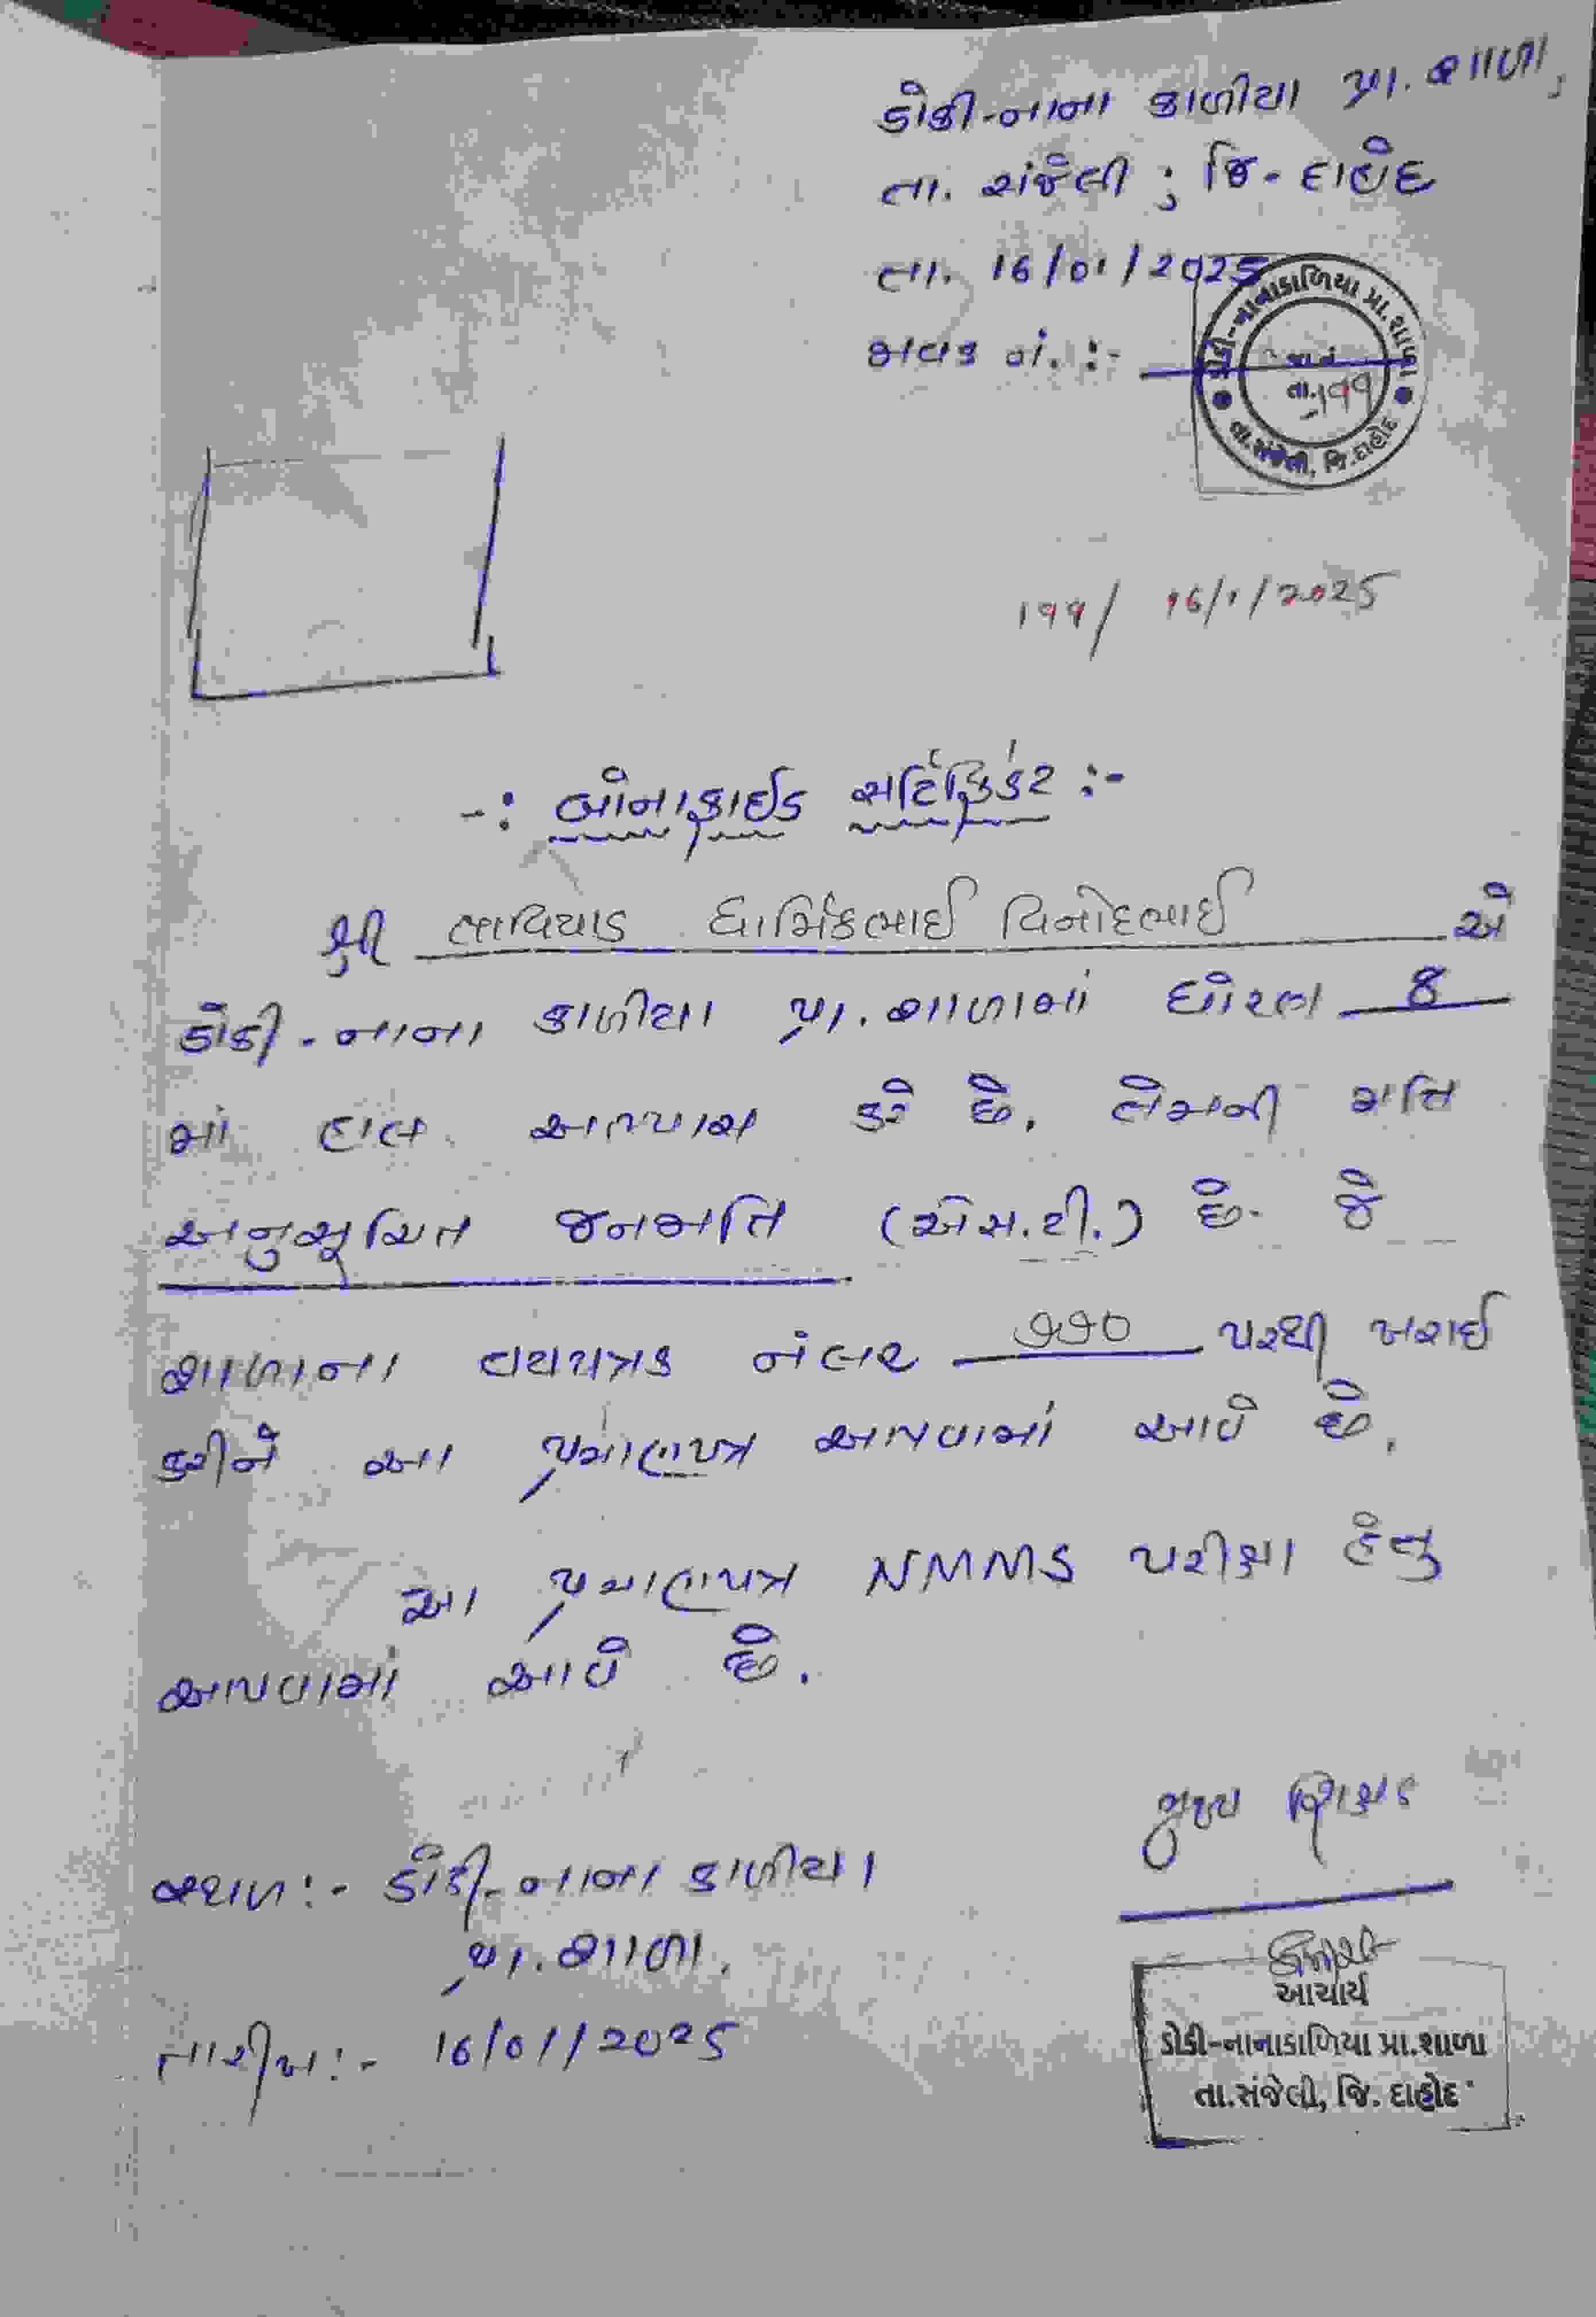 ડોકી-નાના કાળીયા પ્રા. શાળા,
તા. સંજેલી ; જિ- દાહોદ
તા. 16/01/2025
જાવક નં. :-
ડોકી-નાનાકાળિયા પ્રા. શાળા
જા.નં
તા. ૧૧૧
તા.સંજેલી, જિ.દાહોદ
૧૧૧/ ૧6/૧/2025
-: બોનાફાઈડ સર્ટિફિકેટ :-
શ્રી બારીયા ધાર્મિકભાઈ વિનોદભાઈ એ
ડોકી - નાના કાળીયા પ્રા. શાળામાં ધોરણ 8
માં હાલ અભ્યાસ કરે છે. તેમની જાતિ
અનુસૂચિત જનજાતિ (એસ.ટી.) છે- જે
શાળાના વયપત્રક નંબર ૭૭૦ પરથી ખરાઈ
કરીને આ પ્રમાણપત્ર આપવામાં આવે છે.
આ પ્રમાણપત્ર NMMS પરીક્ષા હેતુ
આપવામાં આવે છે.
મુખ્ય શિક્ષક
સ્થળ :- ડોકી-નાના કાળીયા
પ્રા. શાળા.
તારીખ :- 16/01/2025
આચાર્ય
ડોકી-નાનાકાળિયા પ્રા.શાળા
તા.સંજેલી, જિ. દાહોદ